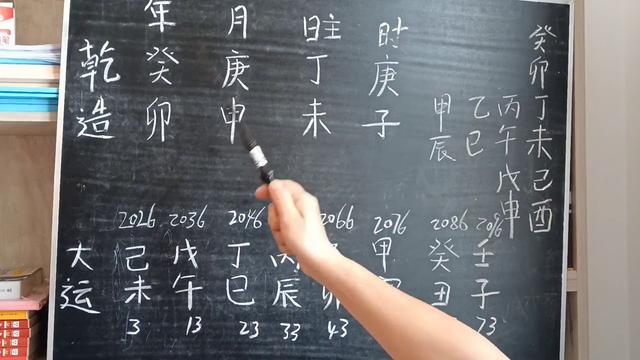 年 月 日主 时
乾造 癸卯 庚申 丁未 庚子
甲辰 乙巳 丙午 丁未 戊申 己酉
癸卯
2026 2036 2046 2066 2076 2086 2096
大运 己未 戊午 丁巳 丙辰 甲 癸丑 壬子
3 13 23 33 43 73